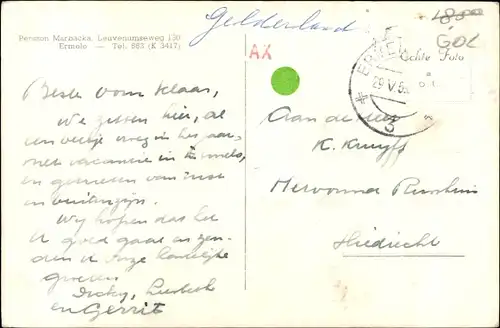 Pension Marnacka, Leuvenumseweg 130
Ermelo — Tel. 883 (K 3417)
Gelderland
GOL
AX
Echte Foto
ERMELO
29 V 5
3
Beste oom Klaas,
We zitten hier, al
een weekje vroeg in het jaar,
met vacantie in Ermelo,
en genieten van rust
en buitenzijn.
Wij hopen dat het
U goed gaat en zen-
den U onze hartelijke
groeten
Dicky, Liesbeth
en Gerrit
Aan de Heer
K. Kruyff
Hervormd Rusthuis
Sliedrecht